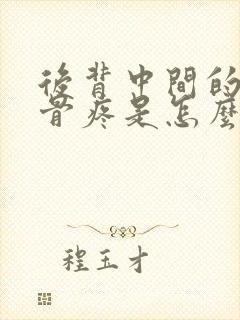 後背中間的
骨疼是怎麼
程玉才